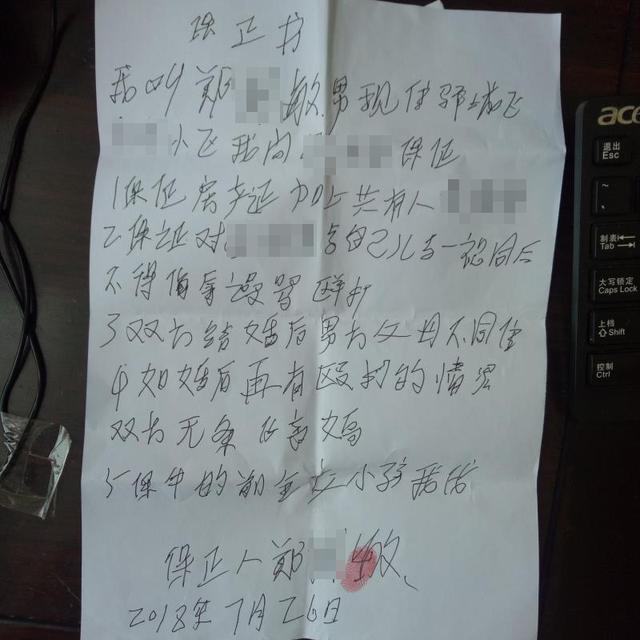 保正书
我叫郑敏男现住驿城飞
小区我向保征
1保征房产证加上共有人
2保证对与自己儿女一视同仁
不得侮辱谩骂
3双方结婚后男方父母不同住
4如婚后再有殴打的情况
双方无条件离婚
5保
保正人郑敏
2018年7月26日
acer
退出
Esc
制表
Tab
大写锁定
Caps Lock
上档
Shift
控制
Ctrl